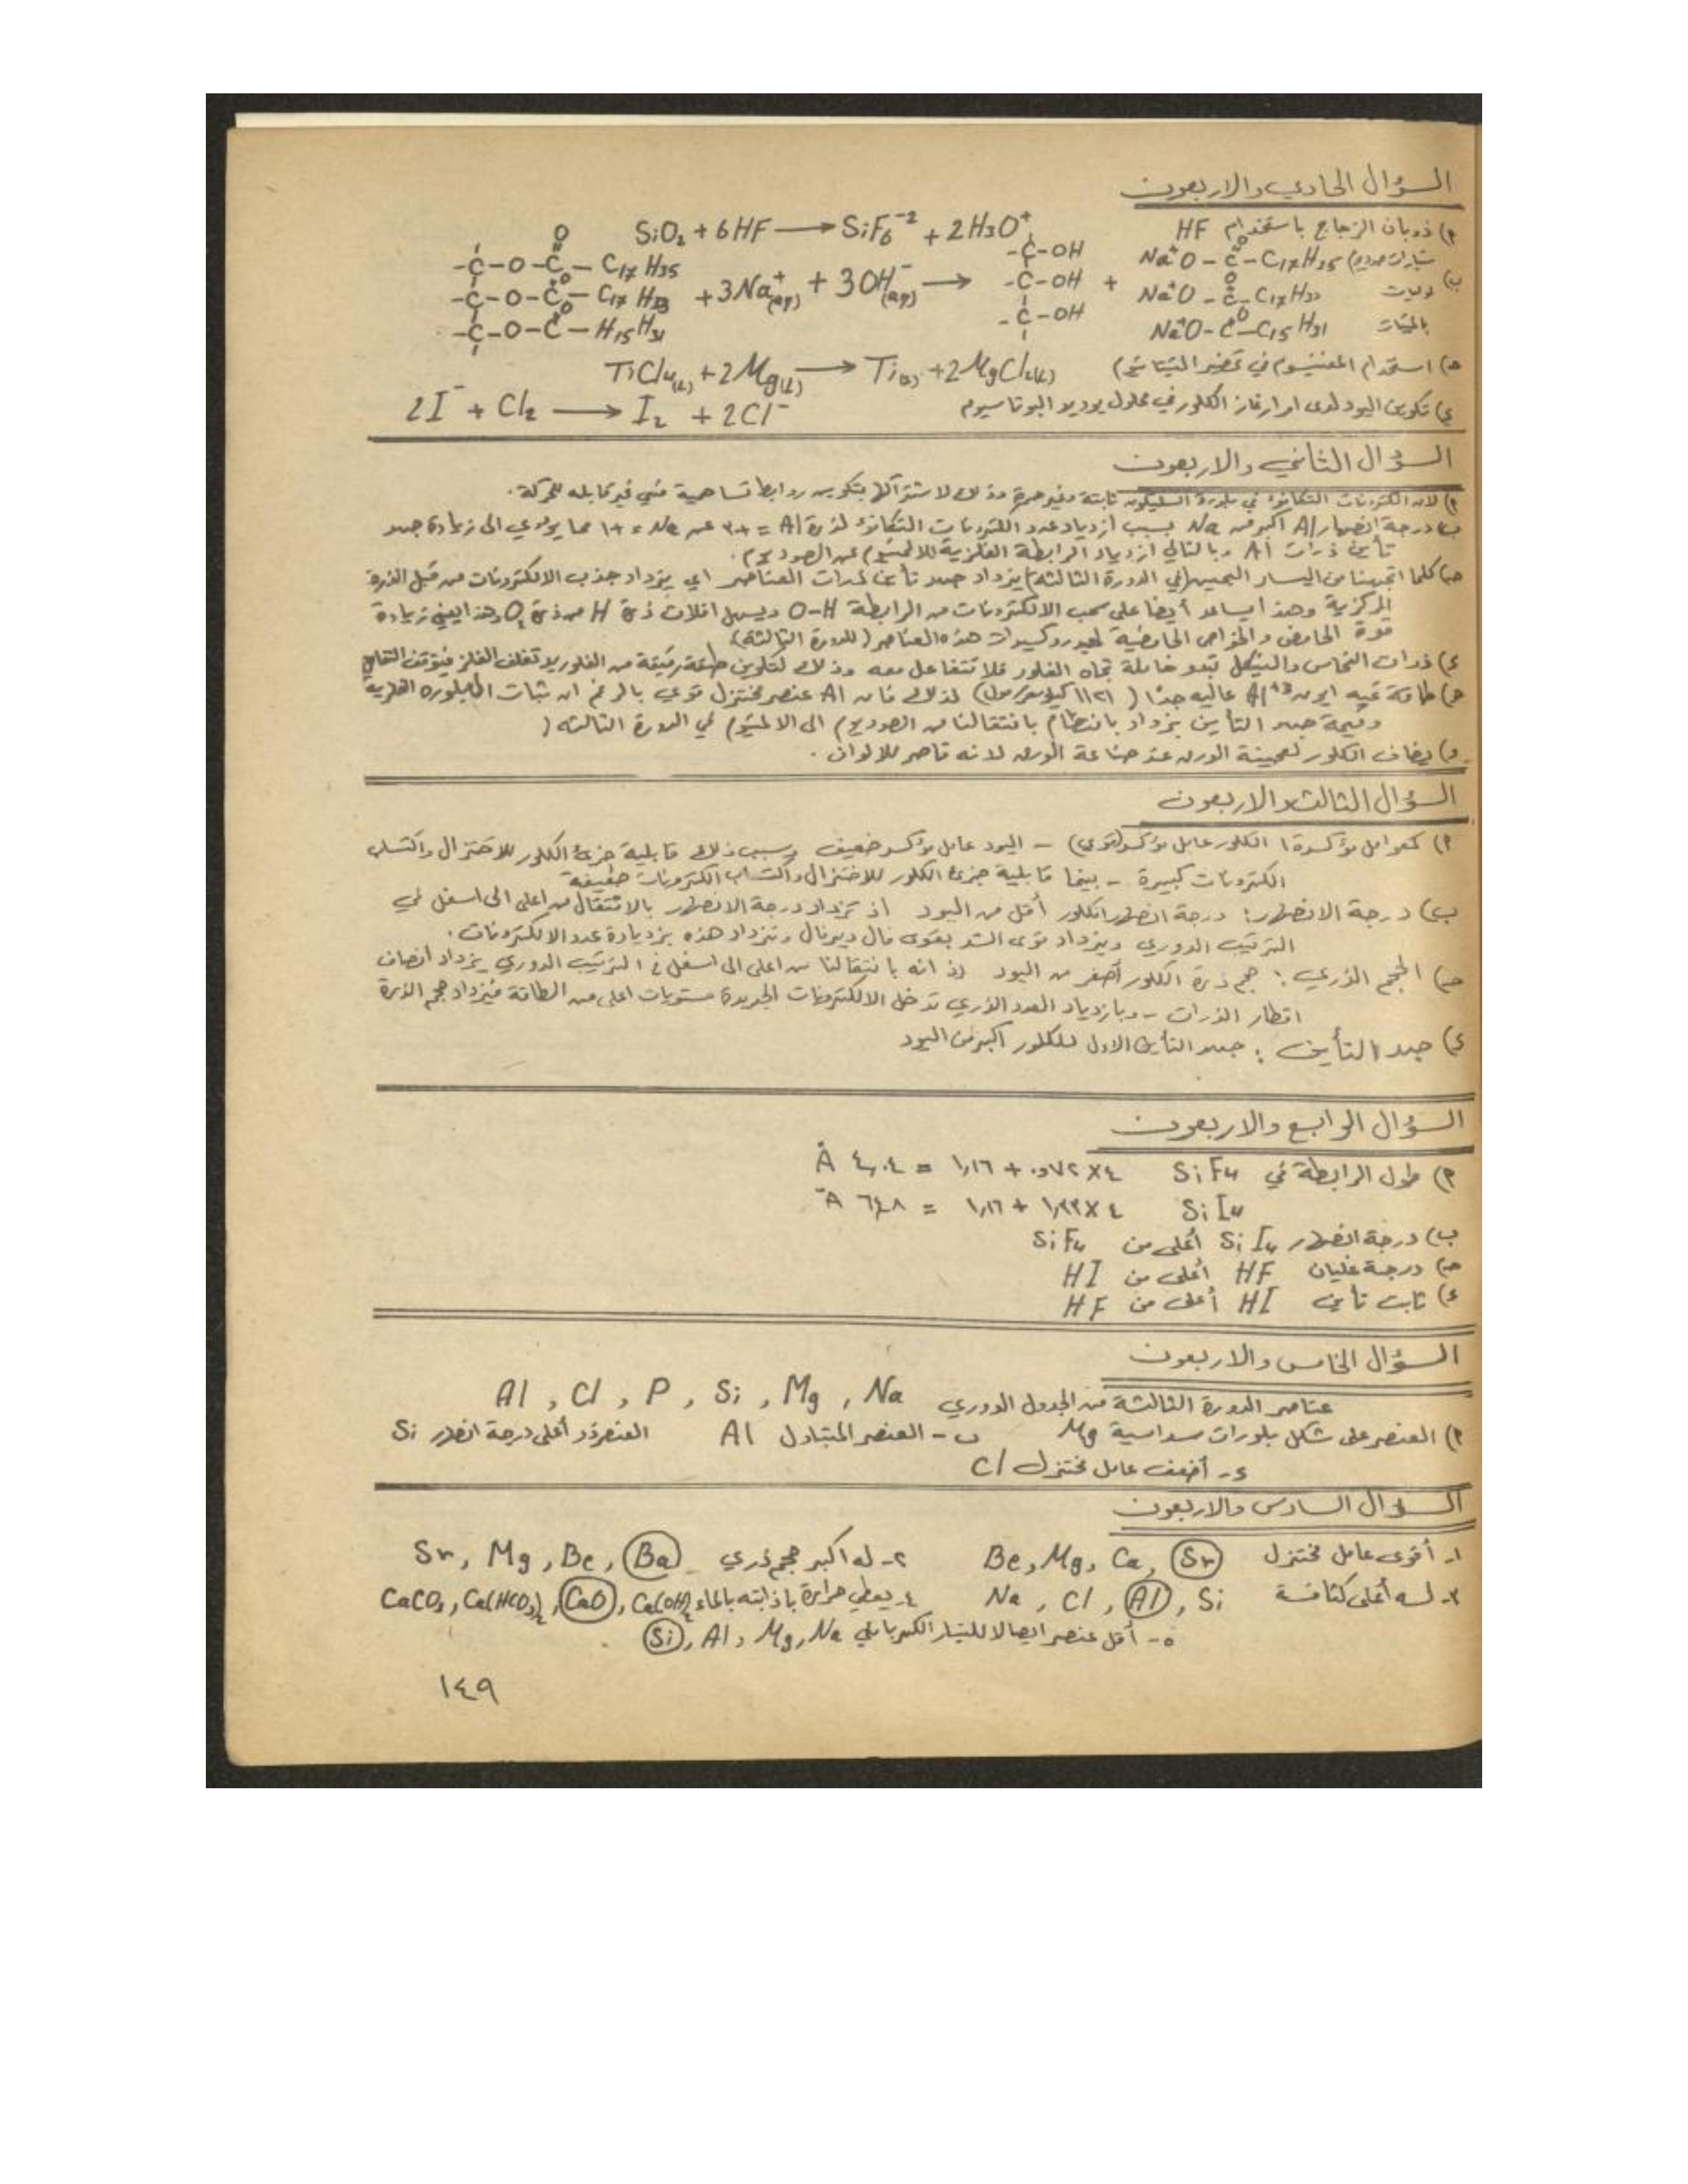 السؤال الحادي والاربعون
٢) ذوبان الزجاج باستخدام HF SiO₂ + 6HF ⟶ SiF₆⁻² + 2H₃O⁺
ب) -C-O-C(=O)-C₁₇H₃₅ -C-OH Na⁺O-C(=O)-C₁₇H₃₅
-C-O-C(=O)-C₁₇H₃₃ + 3Na⁺(aq) + 3OH⁻(aq) ⟶ -C-OH + Na⁺O-C(=O)-C₁₇H₃₃
-C-O-C(=O)-H₁₅H₃₁ -C-OH Na⁺O-C(=O)-C₁₅H₃₁
حـ) استخدام المغنيسوم في تحضير التيتانيوم TiCl₄(l) + 2Mg(l) ⟶ Ti(s) + 2MgCl₂(l)
ء) تكوين اليود لدى امرار غاز الكلور في محلول يوديد البوتاسيوم 2I⁻ + Cl₂ ⟶ I₂ + 2Cl⁻
السؤال الثاني والاربعون
٢) لان الكترونات التكافؤ في بلورة السليكون ثابتة وغير حرة وذلك لاشتراكها بتكوين روابط تساهمية فهي غير قابله للحركة.
ب) درجة انصهار Al أكبر من Na بسبب ازدياد عدد الكترونات التكافؤ لذرة Al = +٣ عن Na = +١ مما يؤدي الى زيادة جهد
تأين ذرات Al وبالتالي ازدياد الرابطة الفلزية للالمنيوم عن الصوديوم.
حـ) كلما اتجهنا من اليسار لليمين (في الدورة الثالثة) يزداد جهد تأين لذرات العناصر اي يزداد جذب الالكترونات من قبل الذرة
المركزية وهذا يساعد أيضا على سحب الالكترونات من الرابطة O-H ويسهل افلات ذرة H من ذرة O وهذا يعني زيادة
قوة الحامض والخواص الحامضية لهيدروكسيدات هذه العناصر (للدورة الثالثة)
ء) ذرات النحاس والنيكل تبدو خاملة تجاه الفلور فلا تتفاعل معه وذلك لتكوين طبقة رقيقة من الفلوريد تغلف الفلز فيتوقف التفاعل
هـ) طاقة تميه ايون Al⁺³ عاليه جدًا (١١٢١ كيلو سعر/مول) لذلك فان Al عنصر مختزل قوي بالرغم ان ثبات البلوره الفلزية
وقيمة جهد التأين يزداد بانتظام بانتقالنا من الصوديوم الى الالمنيوم في الدورة الثالثه (
و) يضاف الكلور لعجينة الورق عند صناعة الورق لانه قاصر للالوان.
السؤال الثالث والاربعون
٢) كعوامل مؤكسدة ١ الكلور عامل مؤكسد (قوي) - اليود عامل مؤكسد ضعيف وسبب ذلك قابلية جزئ الكلور للاختزال واكتساب
الكترونات كبيرة - بينما قابلية جزئ الكلور للاختزال واكتساب الكترونات ضعيفة
ب) درجة الانصهار: درجة انصهار الكلور أقل من اليود اذ تزداد درجة الانصهار بالانتقال من اعلى الى اسفل في
الترتيب الدوري ويزداد قوى الشد بقوى فان ديرفال وتزداد هذه بزيادة عدد الالكترونات.
حـ) الحجم الذري: حجم ذرة الكلور أصغر من اليود اذ انه بانتقالنا من اعلى الى اسفل في الترتيب الدوري يزداد انصاف
اقطار الذرات - وبازدياد العدد الذري تدخل الالكترونات الجديدة مستويات اعلى من الطاقة فيزداد حجم الذرة
ء) جهد التأين: جهد التأين الاول للكلور اكبر من اليود
السؤال الرابع والاربعون
٢) طول الرابطة في SiF₄ ٤×٠,٧٢ + ١,١٦ = ٤,٠٤ Å
SiI₄ ٤×١,٣٣ + ١,١٦ = ٦,٤٨ Å
ب) درجة انصهار SiI₄ أعلى من SiF₄
حـ) درجة غليان HF أعلى من HI
ء) ثابت تأين HI أعلى من HF
السؤال الخامس والاربعون
عناصر الدورة الثالثة من الجدول الدوري Al , Cl , P , Si , Mg , Na
٢) العنصر على شكل بلورات سداسية Mg ب - العنصر المتبادل Al العنصر ذو أعلى درجة انصهار Si
ء - أضعف عامل مختزل Cl
السؤال السادس والاربعون
١- أقوى عامل مختزل Be, Mg, Ca, Sr ٢- له اكبر حجم ذري Sr, Mg, Be, Ba
٣- له أعلى كثافة Na, Cl, Al, Si ٤- يعطي حرارة باذابته بالماء CaCO₃, Ca(HCO₃)₂, CaO, Ca(OH)₂
٥- أقل عنصر ايصالا للتيار الكهربائي Si, Al, Mg, Na
١٤٩